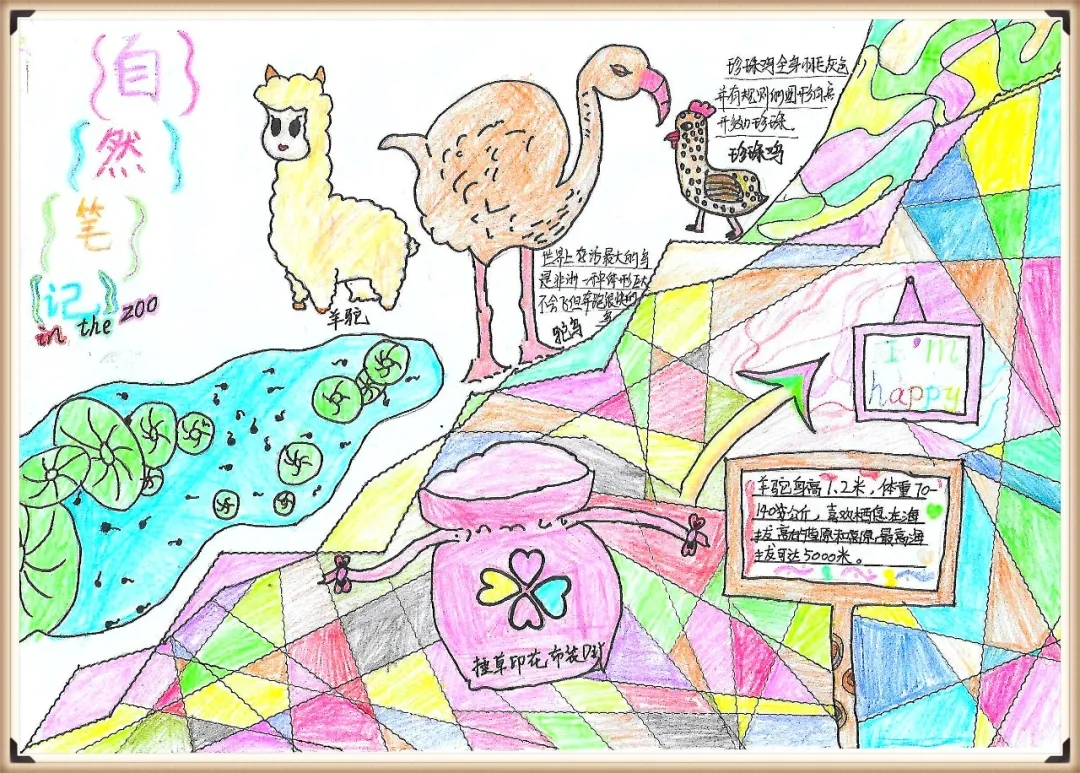 自
然
笔
记
in the zoo
羊驼
世界上存活最大的鸟
是非洲一种体形巨大
不会飞但奔跑很快的
鸟
鸵鸟
珍珠鸡全身羽毛灰色
并有规则的圆形白点
形如珍珠。
珍珠鸡
I'm
happy
羊驼身高1.2米，体重70-
140公斤，喜欢栖息在海
拔高的草原和高原，最高海
拔可达5000米。
植草印花布袋DIY